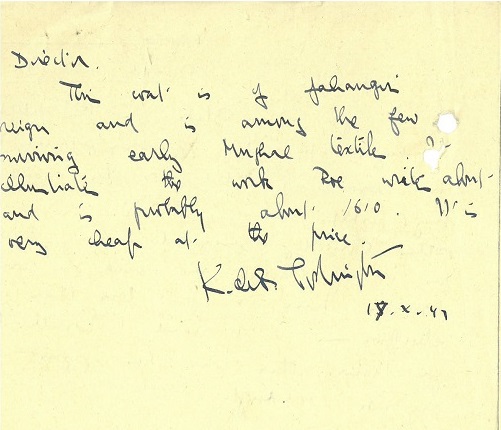 Director.
This coat is of Jahangir
reign and is among the few
surviving early Mughal textile. It
illustrate the work Roe wrote about
and is probably about 1610. It is
very cheap at the price.
K. de B. Codrington